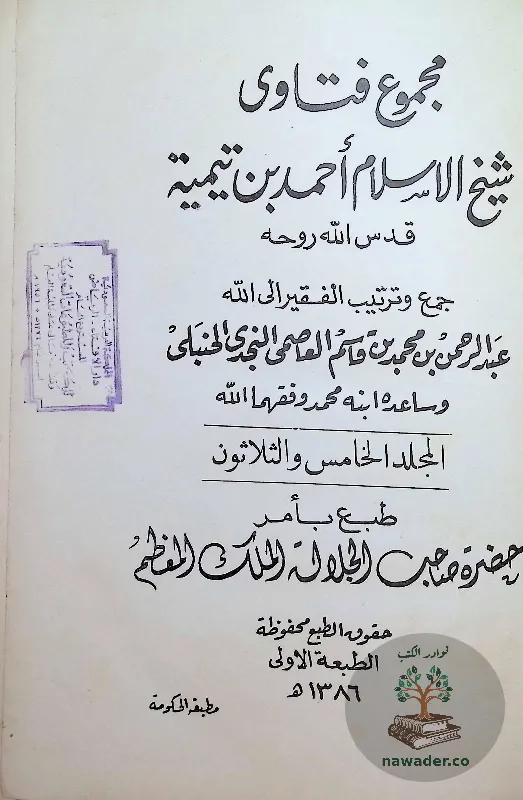 مجموع فتاوى
شيخ الاسلام أحمد بن تيمية
قدس الله روحه
جمع وترتيب الفقير الى الله
عبد الرحمن بن محمد بن قاسم العاصمى النجدى الحنبلى
وساعده ابنه محمد وفقهما الله
المجلد الخامس والثلاثون
طبع بأمر
حضرة صاحب الجلالة الملك المعظم
حقوق الطبع محفوظة
الطبعة الاولى
١٣٨٦ هـ
مطبعة الحكومة
نوادر الكتب
nawader.co